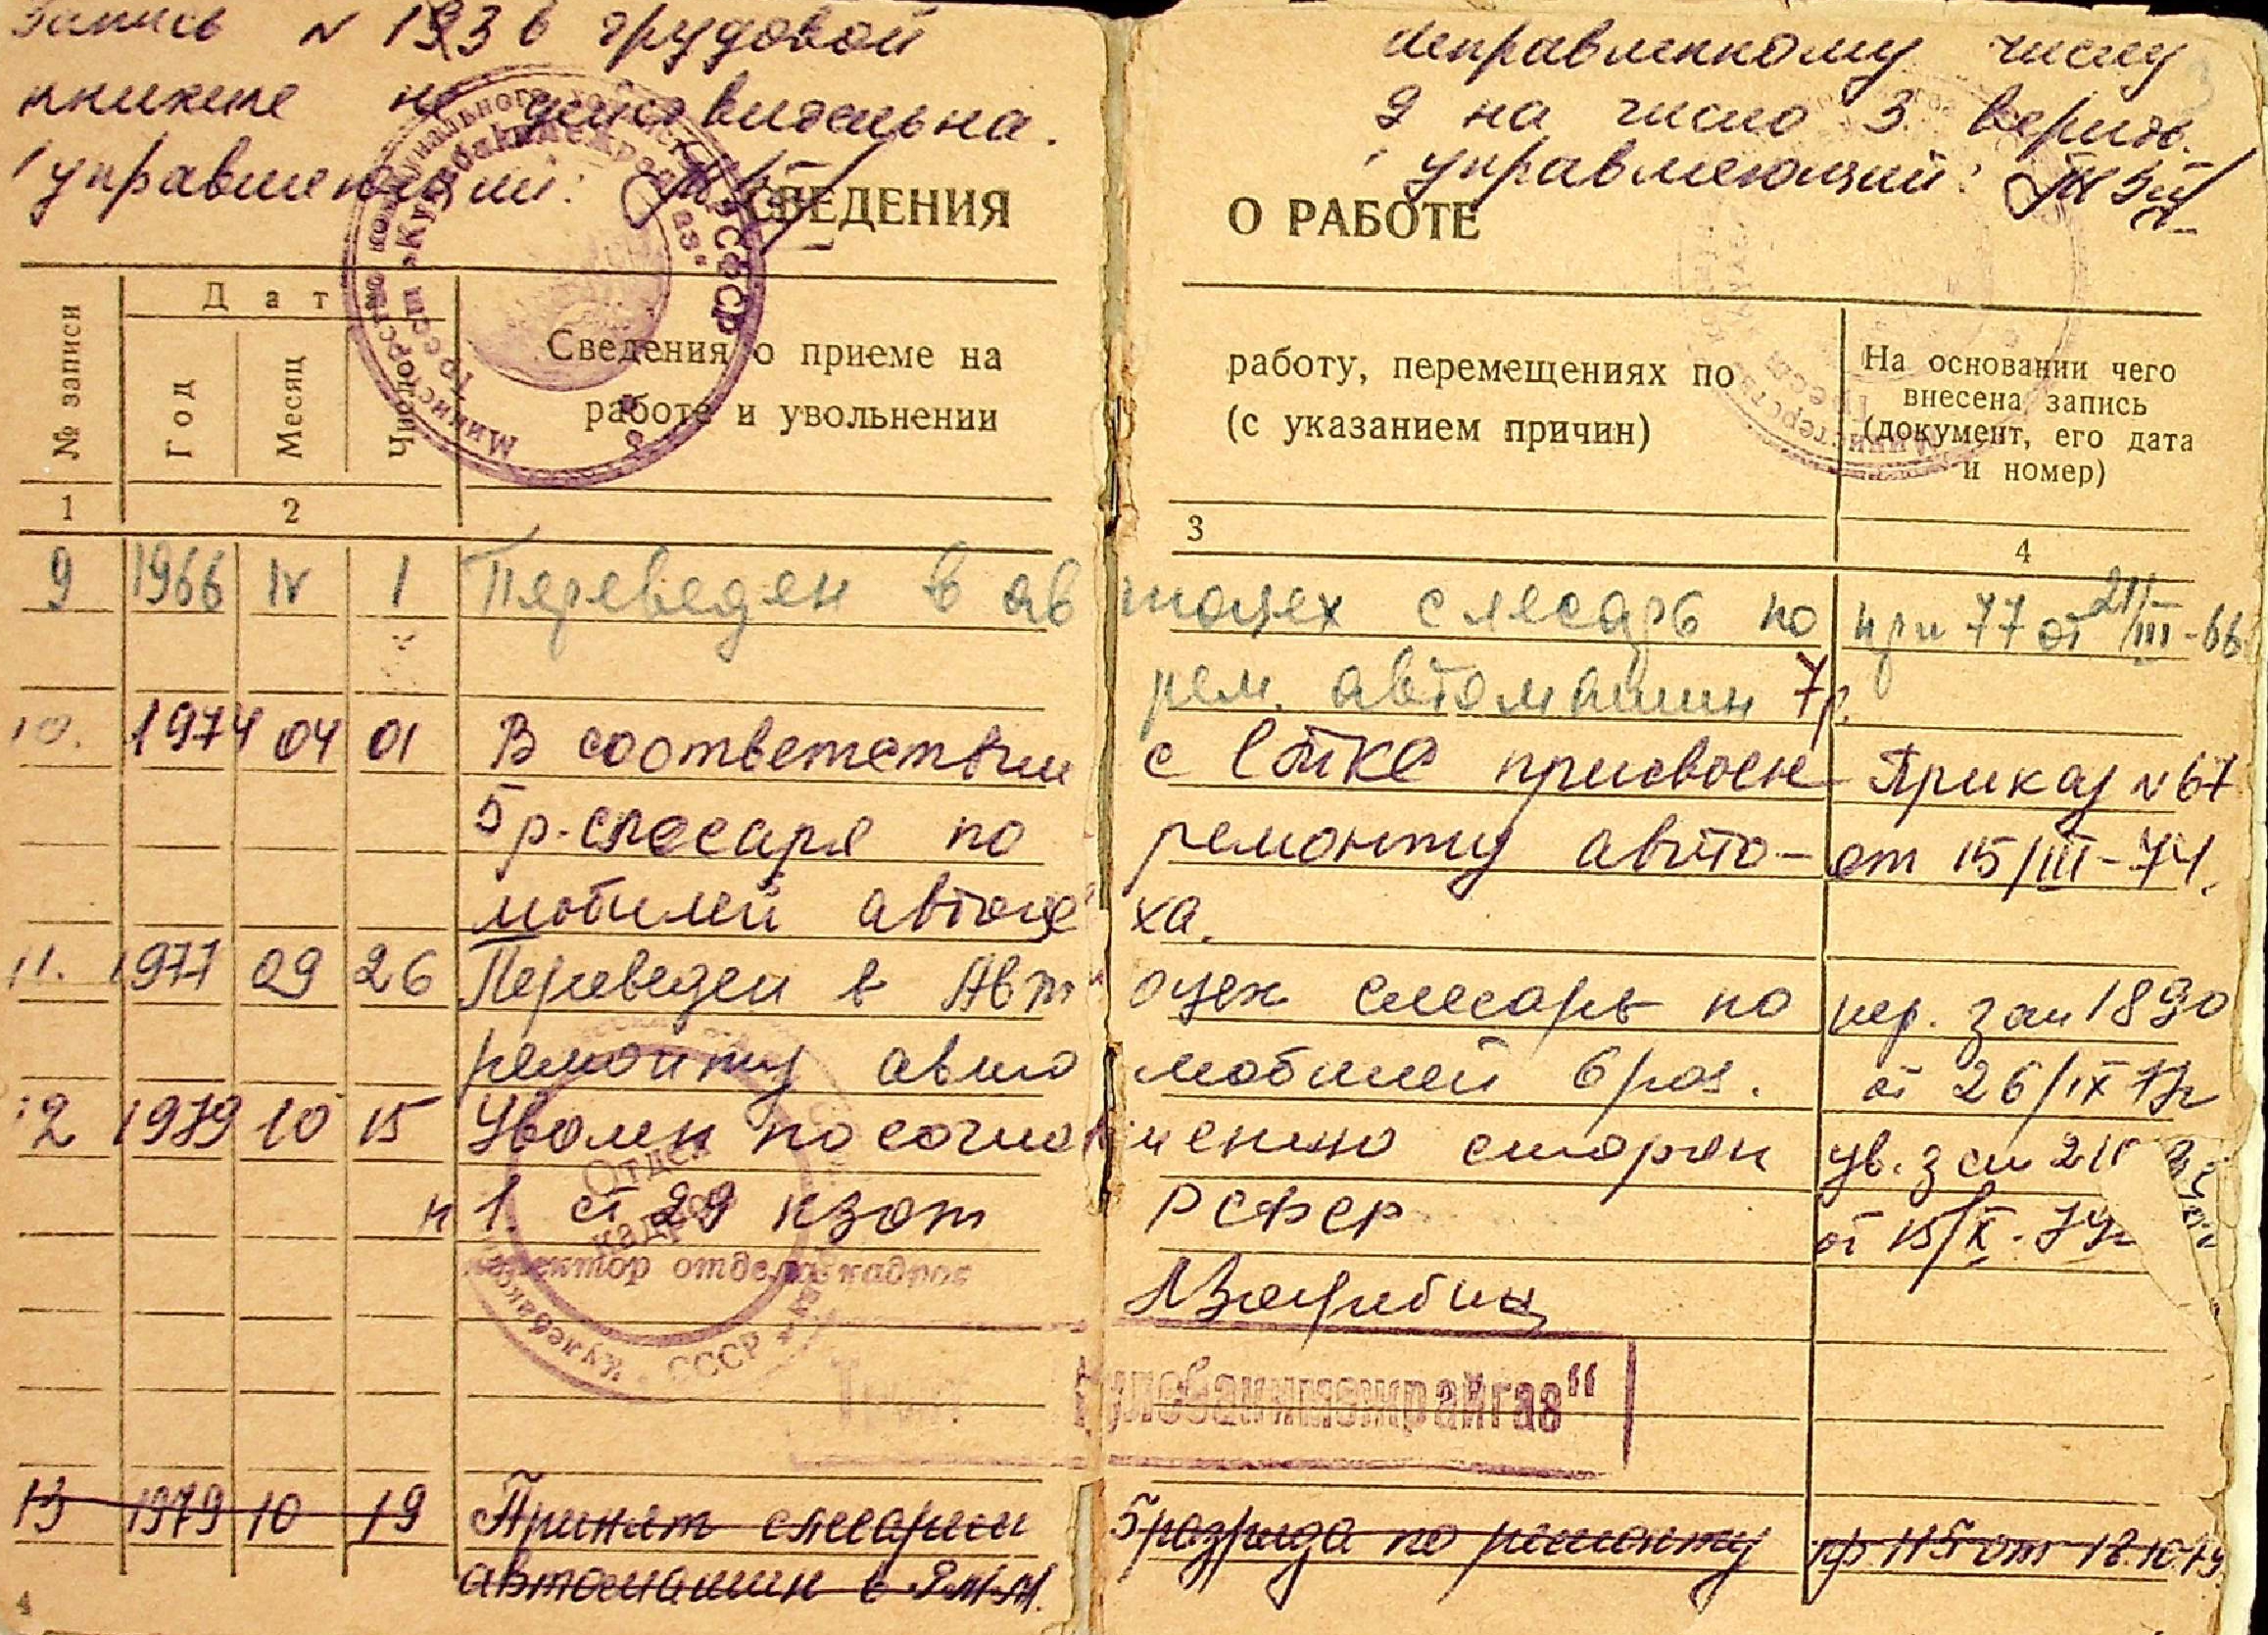 Запись N 13 в трудовой
книжке не действительна.
управляющий:
исправленному числу
2 на число 3 верить.
управляющий:
СВЕДЕНИЯ О РАБОТЕ
№ записи
Дат
Год
Месяц
Число
Сведения о приеме на работу, перемещениях по
работе и увольнении (с указанием причин)
На основании чего
внесена запись
(документ, его дата
и номер)
1 2 3 4
9 1966 IV 1 Переведен в автоцех слесарь по при 77 от 21/III-66
рем. автомашин 7р.
10. 1974 04 01 В соответствии с ЕТКС присвоен Приказ N 67
5 р. слесаря по ремонту авто- от 15/III-74.
мобилей автоцеха.
11. 1977 09 26 Переведен в Автоцех слесарь по пер. зап 1890
ремонту автомобилей 6 раз. от 26/IX 77г
12 1979 10 15 Уволен по соглашению сторон ув. зап
п 1. ст 29 кзот РСФСР от 15/X-79г
Отдел
кадров
инспектор отдела кадров
СССР
Трест "Кулебакимежрайгаз"
13 1979 10 19 Принят слесарем 5 разряда по ремонту пр 115 от 18.10.79
автомашин в
4